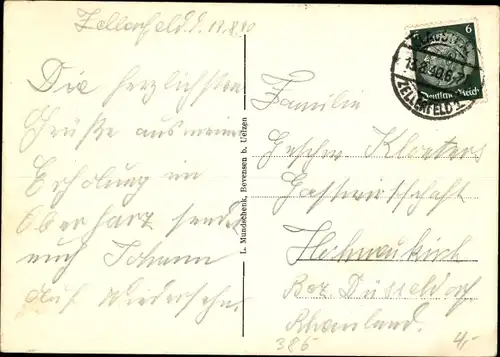 Zellerfeld, d. 12.8.40
Die herzlichsten
Grüße aus meiner
Erholung im
Oberharz sendet
euch Johann
Auf Wiedersehn
L. Mundschenk, Bevensen b. Uelzen
6
Deutsches Reich
ZELLERFELD
Familie
Geschw. Klosters
Gastwirtschaft
Hochneukirch
Bez. Düsseldorf
Rheinland.
386
4,-